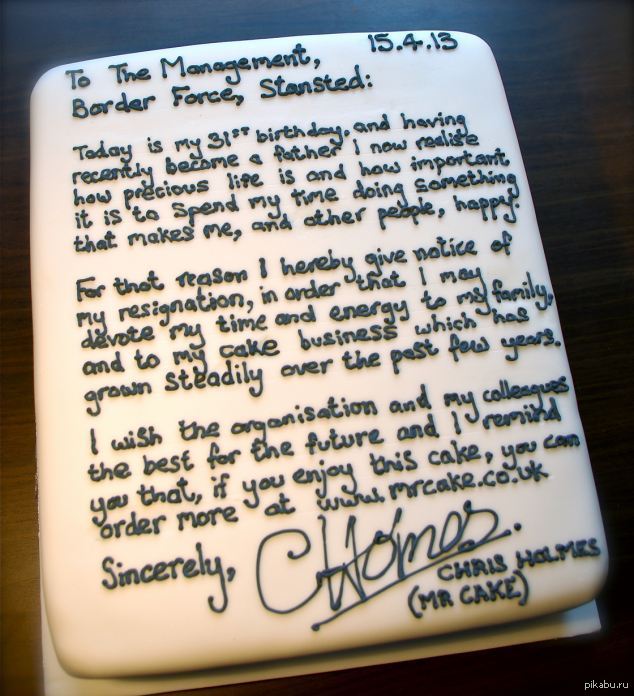 15.4.13
To The Management,
Border Force, Stansted:
Today is my 31st birthday, and having
recently become a father I now realise
how precious life is and how important
it is to spend my time doing something
that makes me, and other people, happy.
For that reason I hereby give notice of
my resignation, in order that I may
devote my time and energy to my family,
and to my cake business which has
grown steadily over the past few years.
I wish the organisation and my colleagues
the best for the future and I remind
you that, if you enjoy this cake, you can
order more at www.mrcake.co.uk
Sincerely,
CHolmes.
CHRIS HOLMES
(MR CAKE)
pikabu.ru